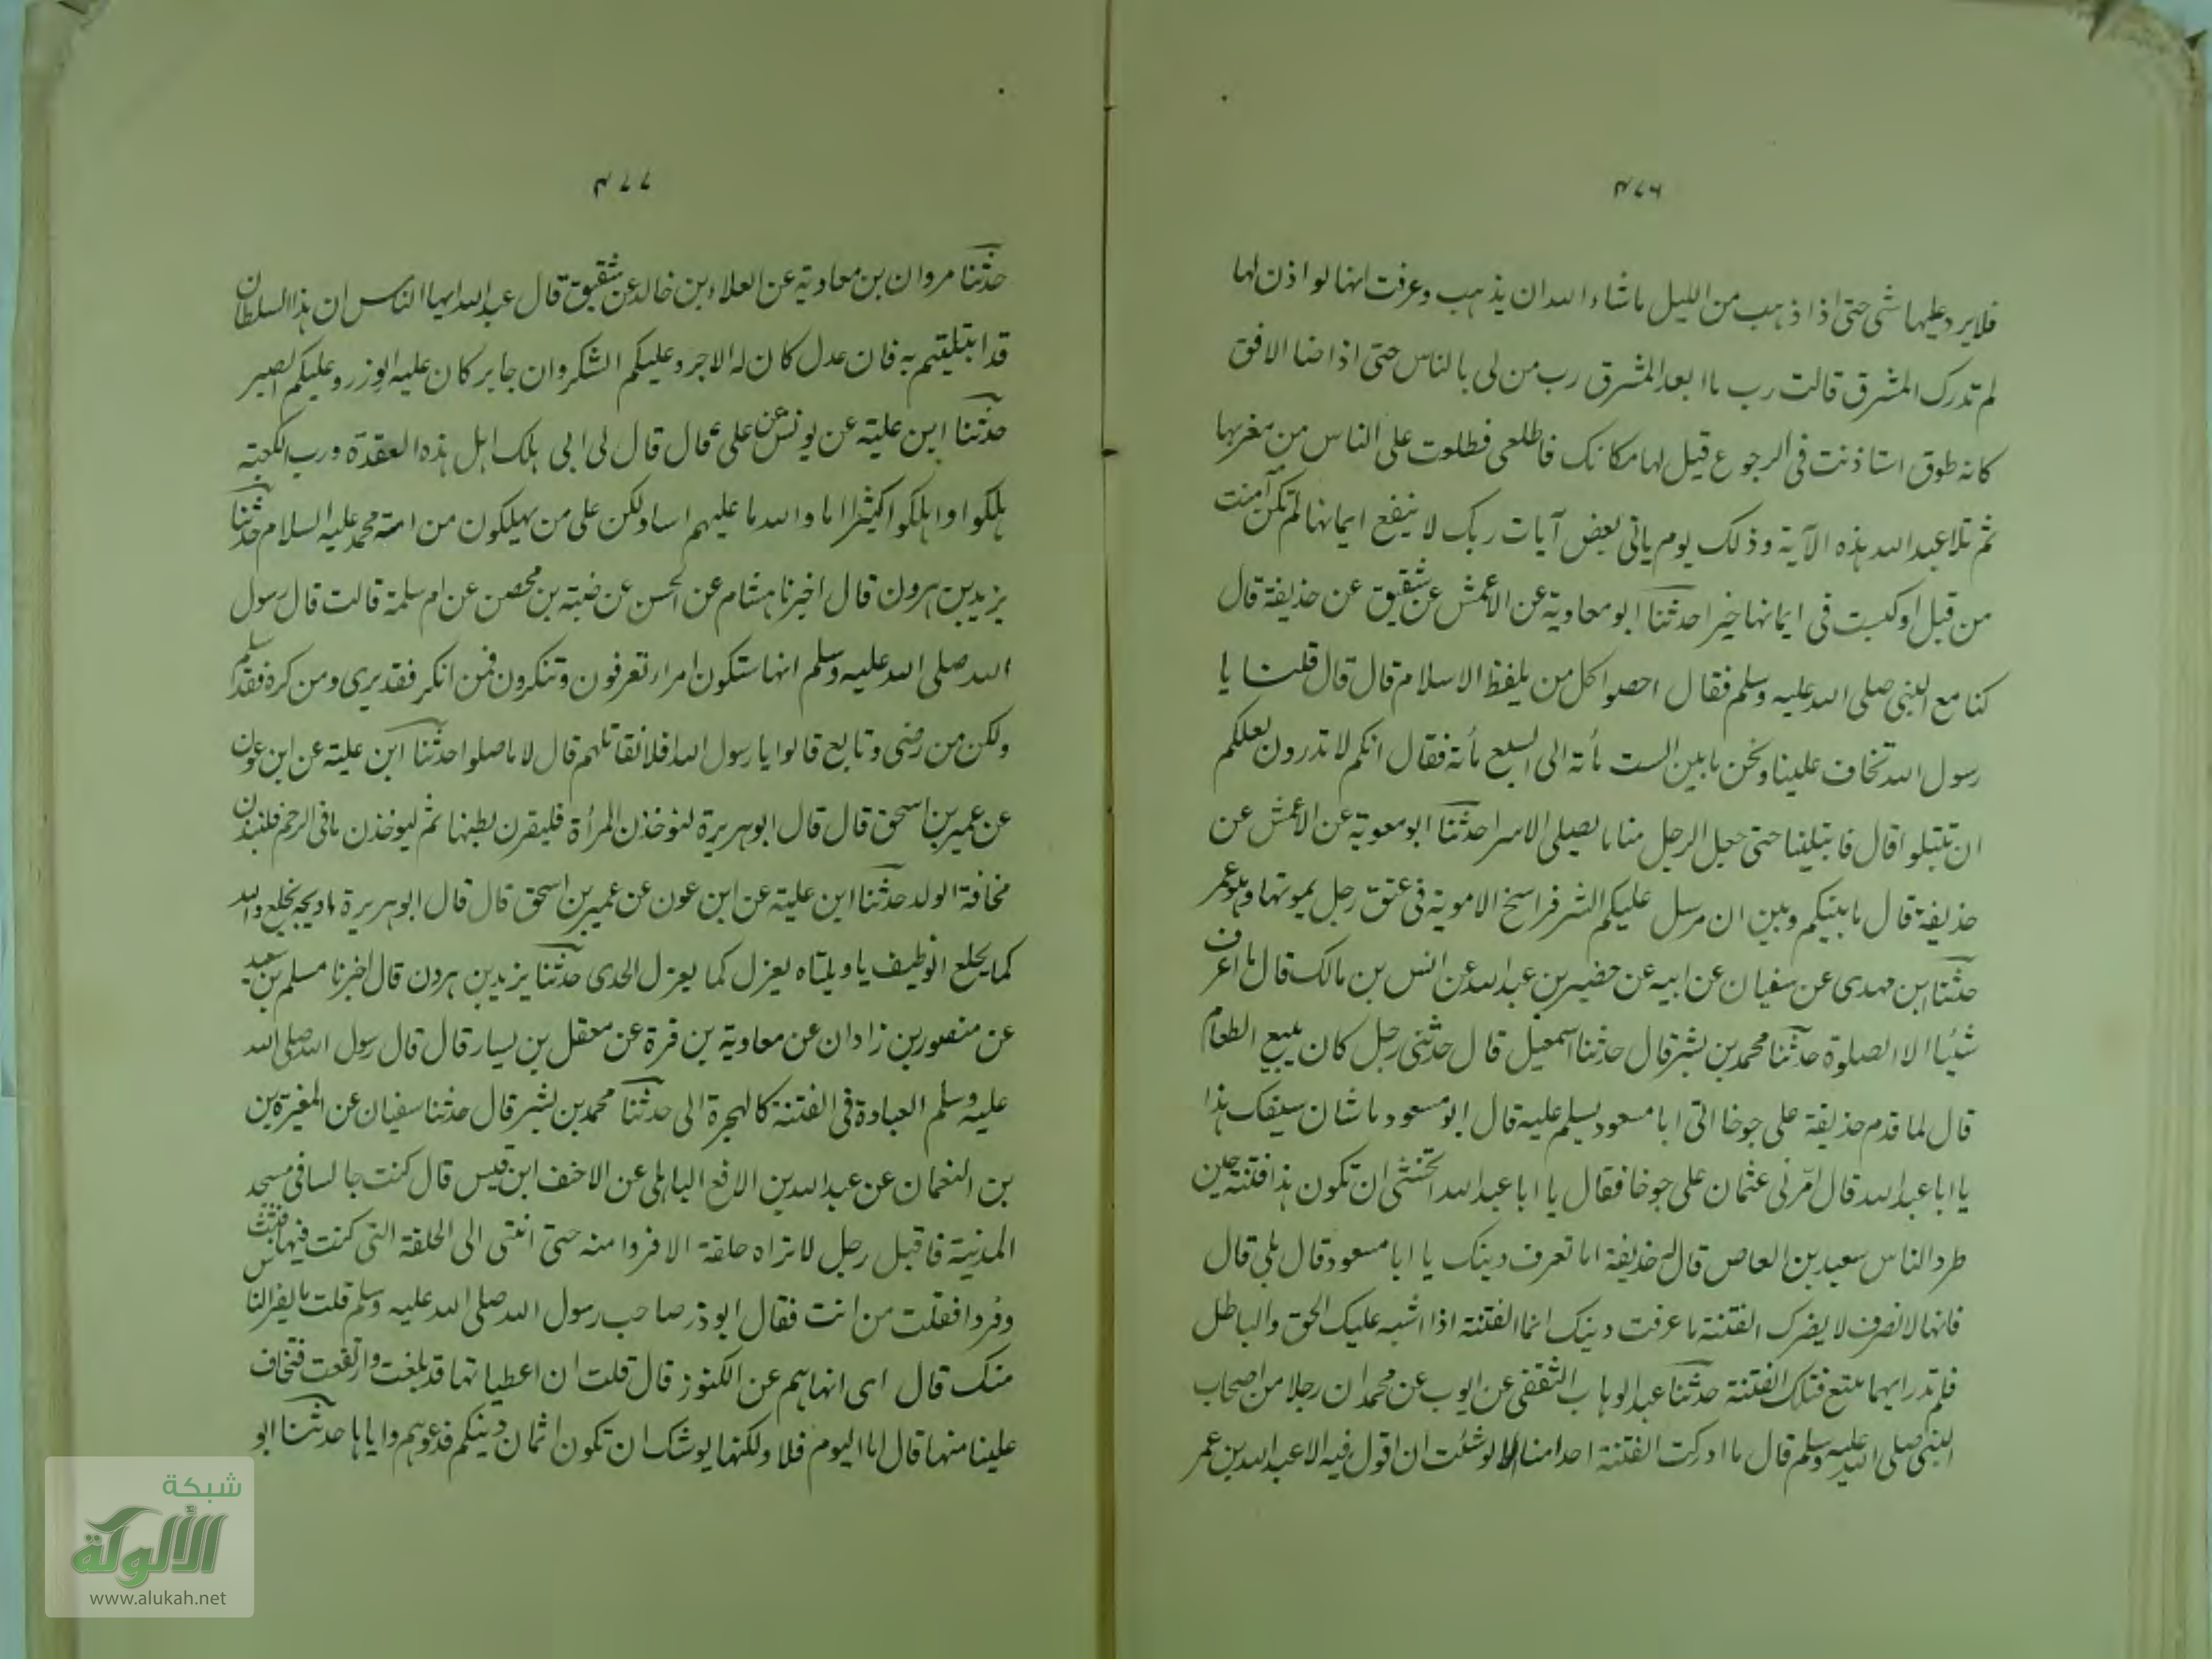 ٤٧٦
فلا يرد عليها شى حتى اذا ذهب من الليل ماشاء الله ان يذهب وعرفت انها لو اذن لها
لم تدرك المشرق قالت رب ما ابعد المشرق رب من لى بالناس حتى اذا ضا الافق
كانه طوق استاذنت فى الرجوع قيل لها مكانك فاطلعى فطلوت على الناس من مغربها
ثم تلا عبد الله هذه الآية وذلك يوم ياتى بعض آيات ربك لا ينفع ايمانها لم تكن آمنت
من قبل اوكسبت فى ايمانها خيرا حدثنا ابو معاوية عن الاعمش عن شقيق عن حذيفة قال
كنا مع النبى صلى الله عليه وسلم فقال احصوا كل من يلفظ الاسلام قال قال قلنا يا
رسول الله تخاف علينا ونحن ما بين الست مأته الى السبع مأته فقال انكم لا تدرون لعلكم
ان تبتلوا قال فابتلينا حتى جعل الرجل منا ما يصلى الا سرا حدثنا ابو معوية عن الاعمش عن
حذيفة قال ما بينكم وبين ان مرسل عليكم الشر فراسخ الا موتة فى عنق رجل يموتها وهو عمر
حدثنا ابن مهدى عن سفيان عن ابيه عن حضير بن عبد الله عن انس بن مالك قال ما اعرف
شيئا الا الصلوة حدثنا محمد بن بشر قال حدثنا اسمعيل قال حدثنى رجل كان يبيع الطعام
قال لما قدم حذيفة على جوخا اتى ابا مسعود يسلم عليه قال ابو مسعود ما شان سيفك هذا
يا ابا عبد الله قال امّرنى عثمان على جوخا فقال يا ابا عبد الله اتخشى ان تكون هذا فتنة حين
طرد الناس سعيد بن العاص قال له حذيفة اما تعرف دينك يا ابا مسعود قال بلى قال
فانها لا تضرف لا يضرك الفتنة ما عرفت دينك انما الفتنة اذا اشبه عليك الحق والباطل
فلم تدر ايهما تتبع فتلك الفتنة حدثنا عبد الوهاب الثقفى عن ايوب عن محمد ان رجلا من اصحاب
النبى صلى الله عليه وسلم قال ما ادركت الفتنة احدا منا الا لو شئت ان اقول فيه الا عبد الله بن عمر
٤٧٧
حدثنا مروان بن معاوية عن العلاء بن خالد عن شقيق قال عبد الله ايها الناس ان هذا السلطان
قد ابتليتم به فان عدل كان له الاجر وعليكم الشكر وان جاير كان عليه الوزر وعليكم الصبر
حدثنا ابن علية عن يونس عن على قال قال لى ابى هلك اهل هذه العقدة ورب الكعبة
هلكوا واهلكوا كثيرا اما والله ما عليهم اسا ولكن على من يهلكون من امته محمد عليه السلام حدثنا
يزيد بن هرون قال اخبرنا هشام عن الحسن عن ضبة بن محصن عن ام سلمة قالت قال رسول
الله صلى الله عليه وسلم انها ستكون امراء تعرفون وتنكرون فمن انكر فقد برى ومن كره فقد سلم
ولكن من رضى وتابع قالوا يا رسول الله افلا نقاتلهم قال لا ما صلوا حدثنا ابن علية عن ابن عون
عن عمير بن اسحق قال قال ابو هريرة لتوخذن المرأة فليقرن بطنها ثم ليوخذن ما فى الرحم فلنبذن
مخافة الولد حدثنا ابن علية عن ابن عون عن عمير بن اسحق قال قال ابو هريرة ما ويحه يخلع والله
كما يخلع الوظيف يا ويلتاه يعزل كما يعزل الجدى حدثنا يزيد بن هرون قال اخبرنا مسلم بن سعيد
عن منصور بن زادان عن معاوية بن قرة عن معقل بن يسار قال قال رسول الله صلى الله
عليه وسلم العبادة فى الفتنة كالهجرة الى حدثنا محمد بن بشر قال حدثنا سفيان عن المغيرة بن
بن النعمان عن عبد الله بن الاقع الباهلى عن الاحنف ابن قيس قال كنت جالسا فى مسجد
المدينة فاقبل رجل لا تراه حلقة الا فروا منه حتى انتى الى الحلقة التى كنت فيها فثبت
وفروا فقلت من انت فقال ابو ذر صاحب رسول الله صلى الله عليه وسلم قلت ما يفر الناس
منك قال اى انهاهم عن الكنوز قال قلت ان اعطياتها قد بلغت وارتفعت فتخاف
علينا منها قال اما اليوم فلا ولكنها يوشك ان تكون اثمان دينكم فدعوهم واياها حدثنا ابو
شبكة
الألوكة
www.alukah.net